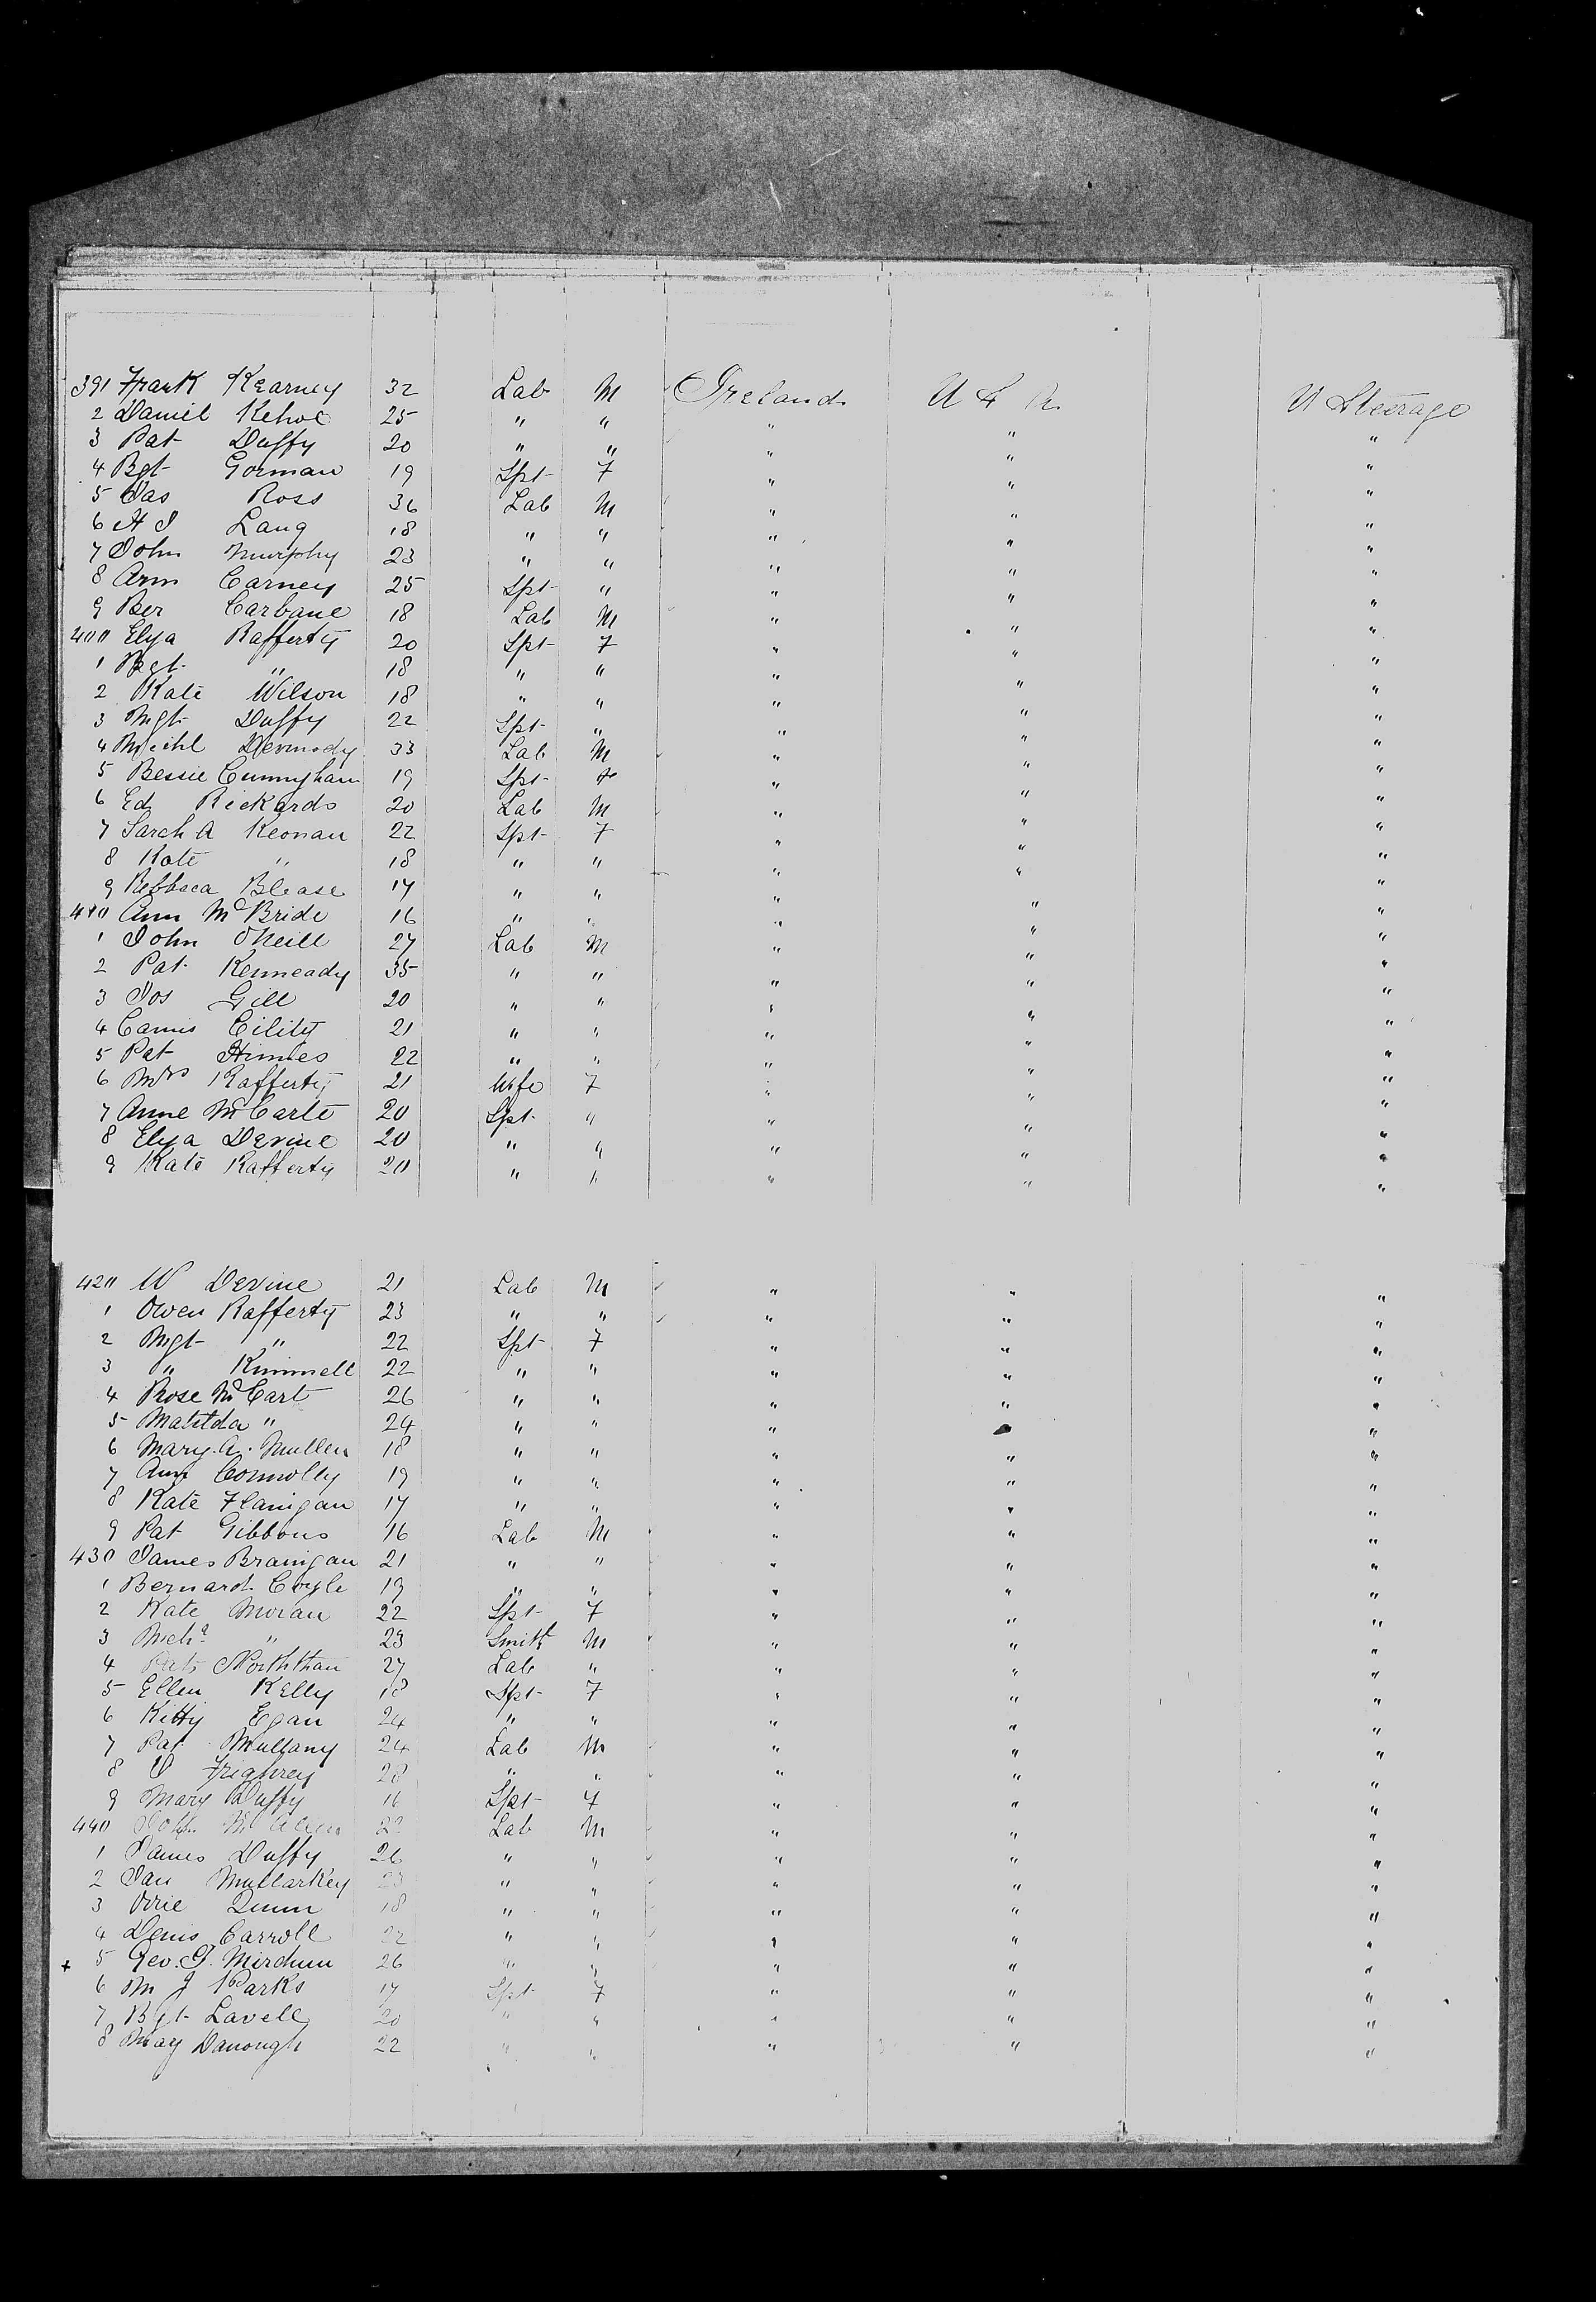 391 Frank Kearney 32 Lab M Ireland U S A U Steerage
2 Daniel Kehoe 25 " " " " "
3 Pat Duffy 20 " " " " "
4 Bgt Gorman 19 Spt F " " "
5 Jas Ross 36 Lab M " " "
6 A J Lang 18 " " " " "
7 John Murphy 23 " " " " "
8 Ann Carney 25 Spt " " " "
9 Ber Carbane 18 Lab M " " "
400 Elya Rafferty 20 Spt F " " "
1 Bgt " 18 " " " " "
2 Kate Wilson 18 " " " " "
3 Mgt Duffy 22 Spt " " " "
4 Michl Dermody 33 Lab M " " "
5 Bessie Cunnyham 19 Spt F " " "
6 Ed Rickards 20 Lab M " " "
7 Sarah A Keonan 22 Spt F " " "
8 Kate " 18 " " " " "
9 Rebbaca Blease 17 " " " " "
410 Ann McBride 16 " " " " "
1 John ONeill 27 Lab M " " "
2 Pat Kenneady 35 " " " " "
3 Jos Gill 20 " " " " "
4 Eility 21 " " " " "
5 Pat Himes 22 " " " " "
6 Mrs Rafferty 21 Wife F " " "
7 Anne McCarte 20 Spt " " " "
8 Elya Devine 20 " " " " "
9 Kate Rafferty 20 " " " " "
420 W Devine 21 Lab M " " "
1 Owen Rafferty 23 " " " " "
2 Mgt " 22 Spt F " " "
3 " Kimmell 22 " " " " "
4 Rose McCart 26 " " " " "
5 Matilda " 24 " " " " "
6 Mary A. Mullen 18 " " " " "
7 Ann Connolly 19 " " " " "
8 Kate Flanigan 17 " " " " "
9 Pat Gibbons 16 Lab M " " "
430 James Branigan 21 " " " " "
1 Bernard Coyle 19 " " " " "
2 Kate Moran 22 Spt F " " "
3 Mchl " 23 Smith M " " "
4 Norththan 27 Lab " " " "
5 Ellen Kelly 18 Spt F " " "
6 Kitty Egan 24 " " " " "
7 Pat Mullany 24 Lab M " " "
8 28 " " " " "
9 Mary Duffy Spt F " " "
440 John Lab M " " "
1 James Duffy 26 " " " " "
2 Jan Mullarkey 23 " " " " "
3 Quinn 18 " " " " "
4 Denis Carroll 22 " " " " "
+ 5 Geo. G. Mirdum 26 " " " " "
6 M J Parks 17 Spt F " " "
7 Bgt Lavell 20 " " " " "
8 May Danough 22 " " " " "